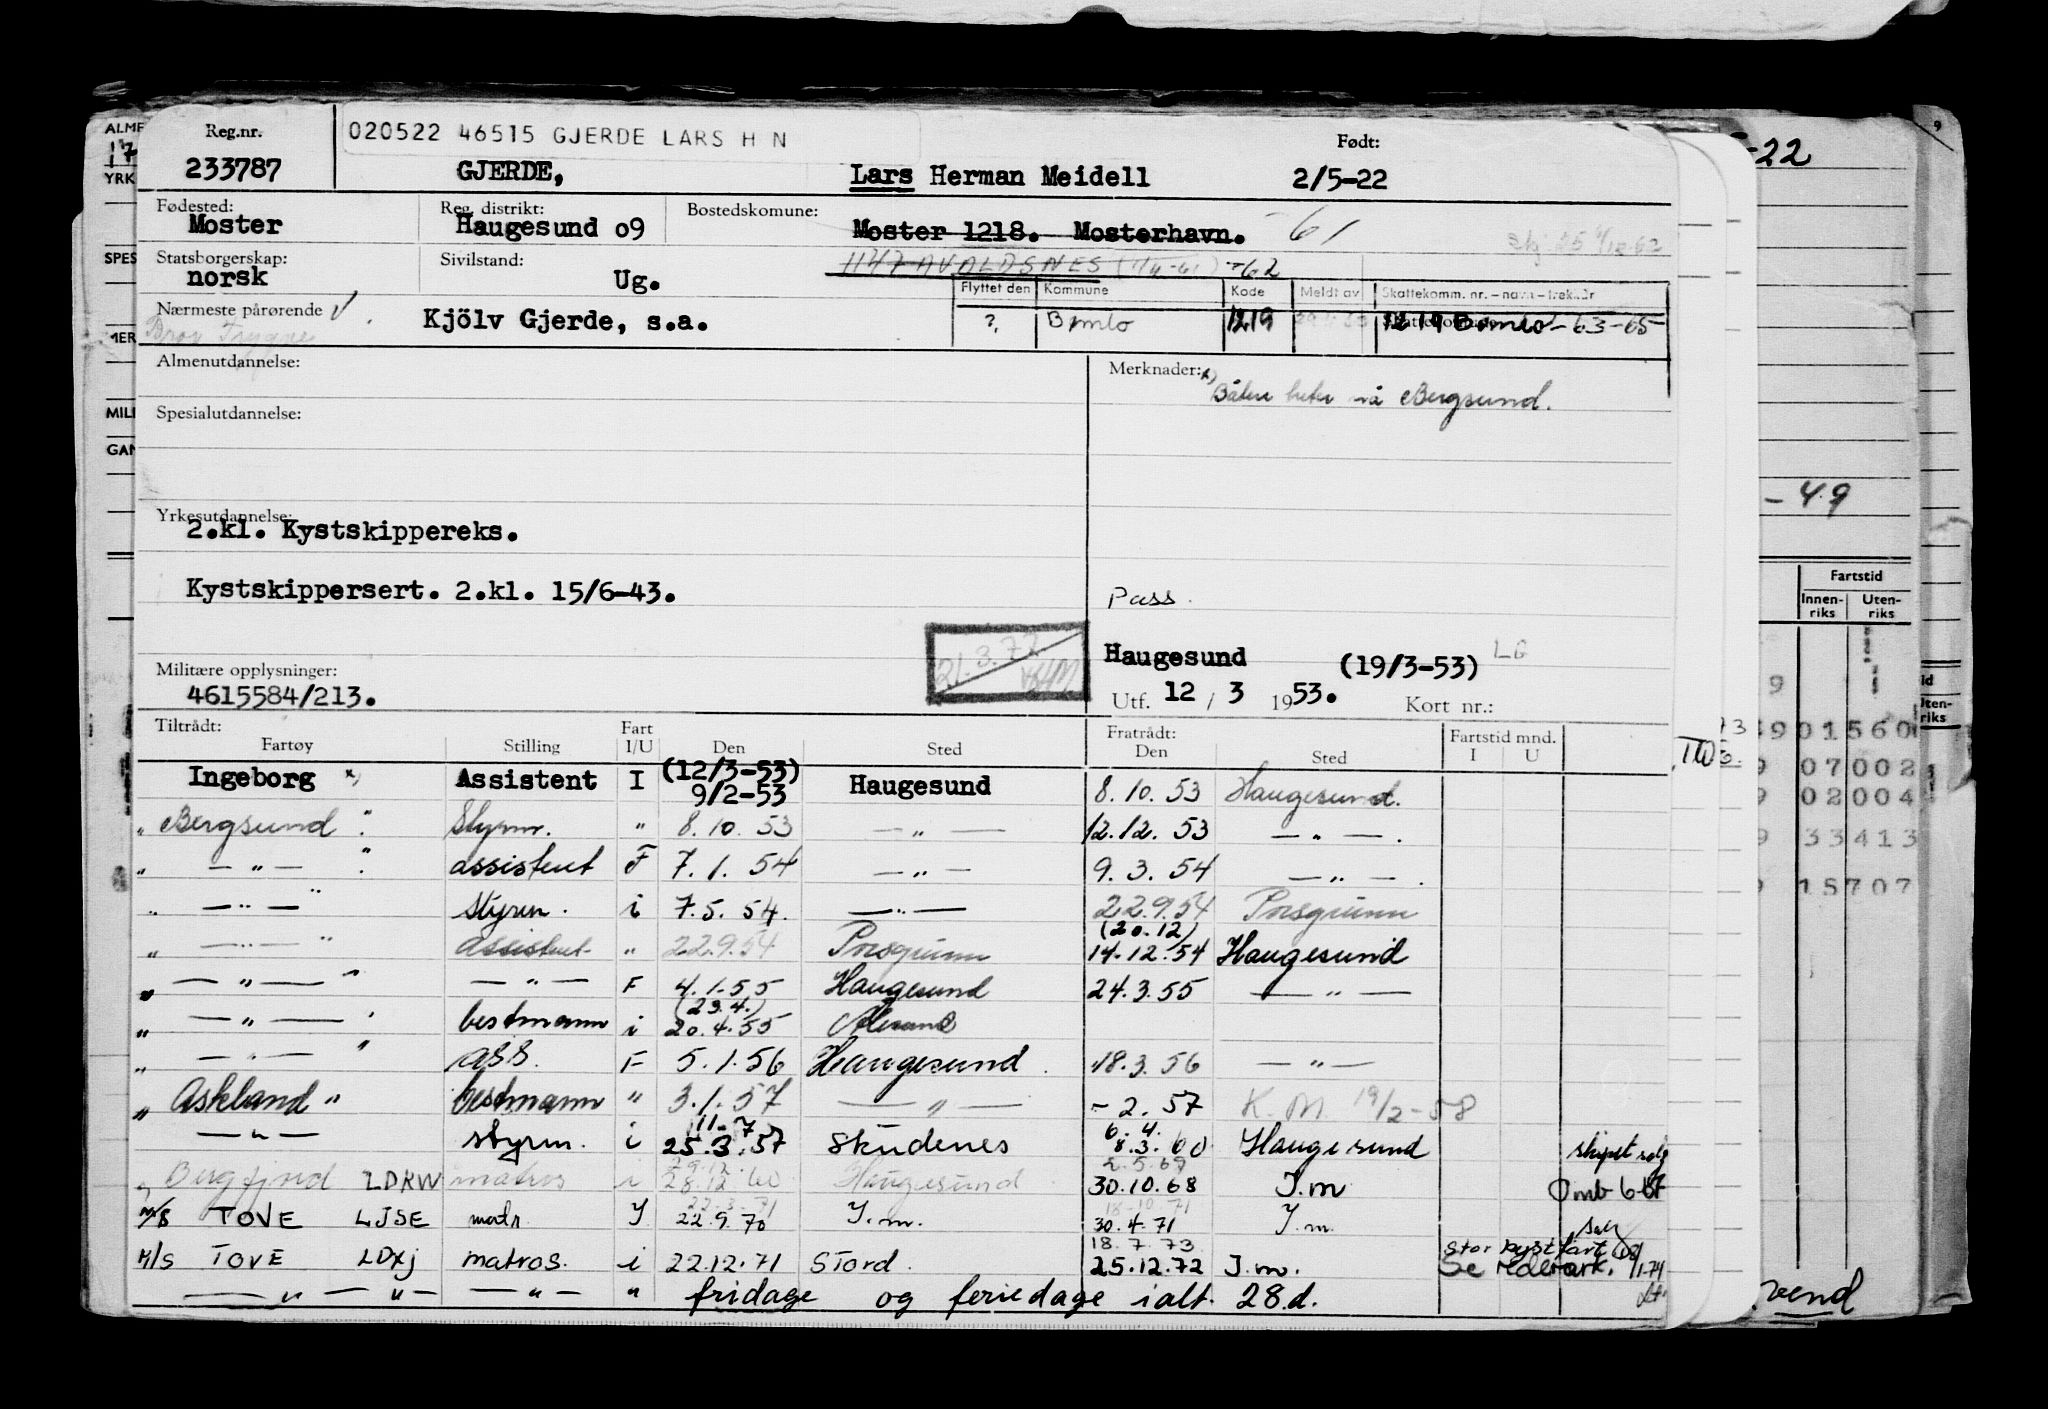 Reg.nr. 020522 46515 GJERDE LARS H N Født:
233787 GJERDE, Lars Herman Meidell 2/5-22
Fødested: Reg. distrikt: Bostedskomune:
Moster Haugesund o9 Moster 1218. Mosterhavn. -61
Statsborgerskap: Sivilstand: 1147 AVALDSNES -62
norsk Ug.
Flyttet den Kommune Kode Meldt av Skattekomm. nr. – navn – trekkår
Nærmeste pårørende Kjölv Gjerde, s.a. ? Bømlo 1219 1219 Bømlo - 63-65
Bror Trygve
Almenutdannelse: Merknader: x)
Båten heter nå Bergsund.
Spesialutdannelse:
Yrkesutdannelse:
2.kl. Kystskippereks.
Kystskippersert. 2.kl. 15/6-43. Pass.
21.3.72
Haugesund (19/3-53) LG
Militære opplysninger:
4615584/213. Utf. 12 / 3 1953. Kort nr.:
Tiltrådt: Fart Fratrådt: Fartstid mnd.
Fartøy Stilling I/U Den Sted Den Sted I U
Ingeborg x) Assistent I (12/3-53) 9/2-53 Haugesund 8.10.53 Haugesund.
" Bergsund " Styrm. " 8.10.53 — " — 12.12.53 — " —.
" — " — " assistent F 7.1.54 — " — 9.3.54 — " —.
" — " — " styrm. i 7.5.54. — " — 22.9.54 Porsgrunn
" — " — " assistent " 22.9.54 Porsgrunn (20.12) 14.12.54 Haugesund
" — " — " — " — F 4.1.55 Haugesund 24.3.55 — " —
" — " — " bestmann i (23.4.) 20.4.55
" — " — " ass. F 5.1.56 Haugesund. 18.3.56 — " —
" Askland " bestmann " 3.1.57 — " — - 2.57 K.M. 19/2-58
— " — styrm. i 11-7 25.3.57 Skudenes 6.4. 8.3.60 Haugesund skipet solgt
" LDKW matros i 29.12. 28.12.60 Haugesund 2.5.69 30.10.68 I.m Omb 6-67
M/S TOVE LJSE matr. I 22.3.71 22.9.70 I.m. 18-10-71 30.4.71 I.m.
M/S TOVE LDXJ matros. i 22.12.71 Stord. 18.7.73 25.12.72 I.m. stor kystfart Se rederark. 1/1-74
— " — " — — " — " fridage og feriedage ialt. 28.d.
-22
-49
Fartstid
Innen-riks Uten-riks
901560
07002
02004
33413
15707
vend